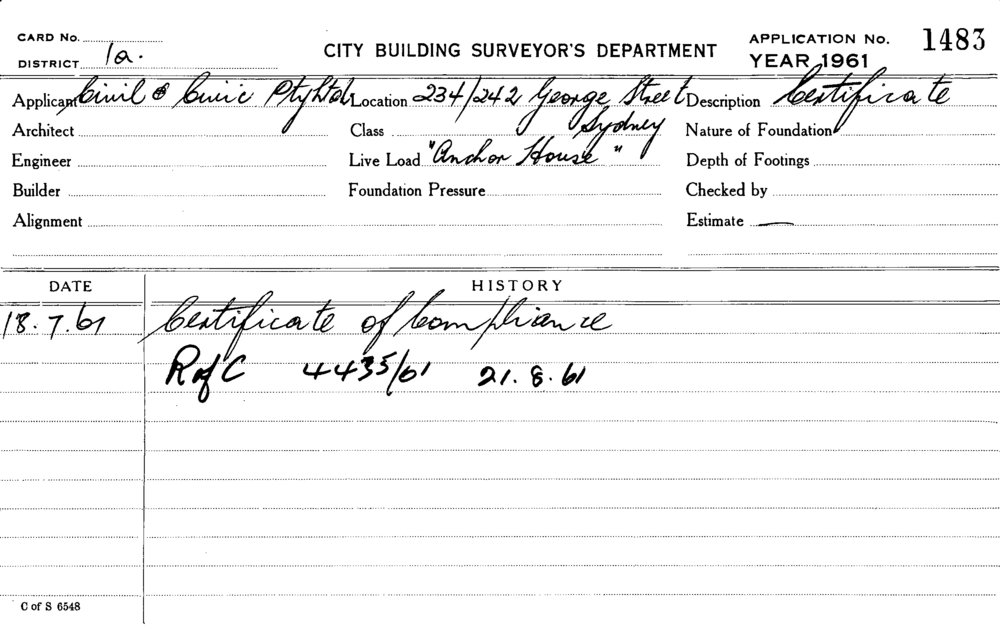 CARD No.
DISTRICT 1a.
CITY BUILDING SURVEYOR'S DEPARTMENT
APPLICATION No. 1483
YEAR 1961
Applicant Civil & Civic Pty Ltd Location 234/242 George Street Description Certificate
Architect Class Sydney Nature of Foundation
Engineer Live Load "Anchor House" Depth of Footings
Builder Foundation Pressure Checked by
Alignment Estimate —
DATE HISTORY
18.7.61 Certificate of Compliance
R of C 4435/61 21.8.61
C of S 6548